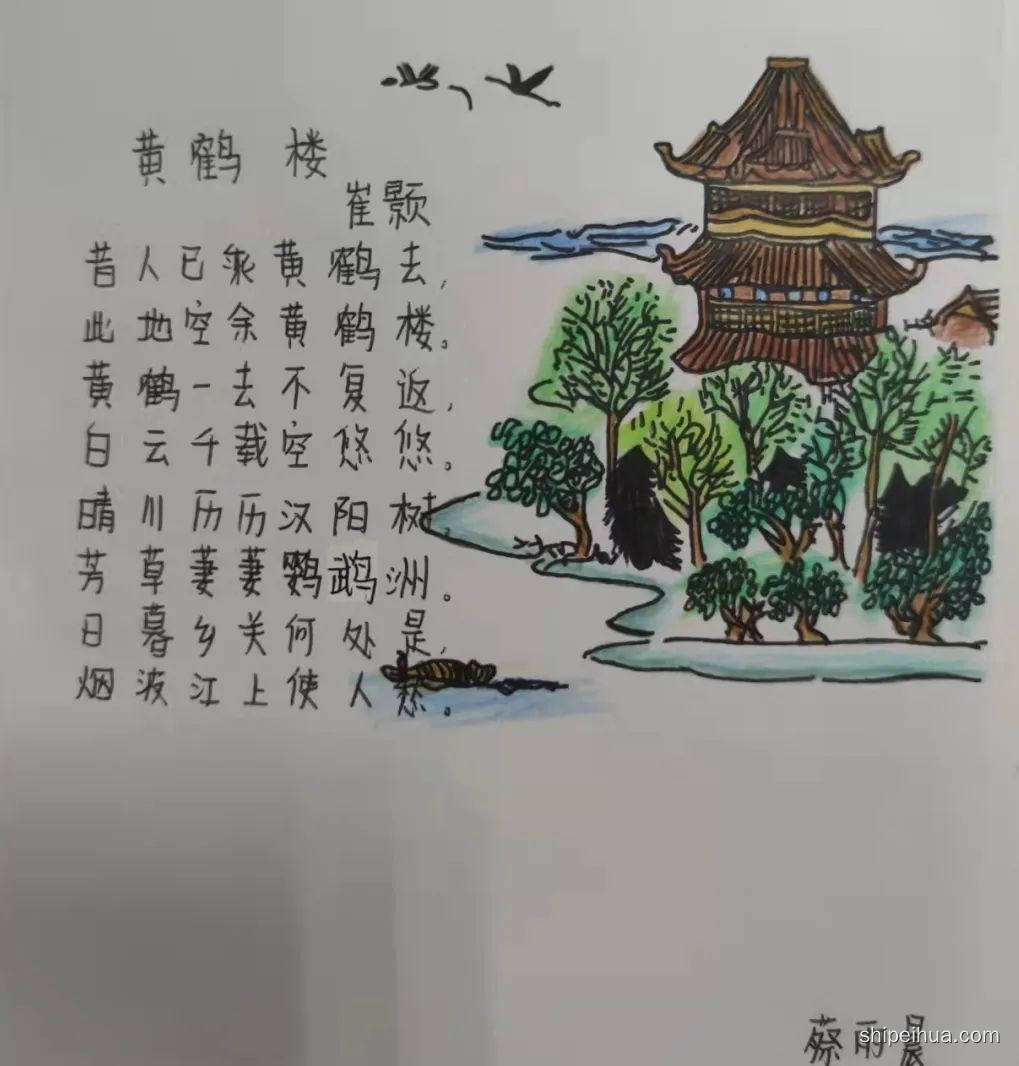 黄鹤楼
崔颢
昔人已乘黄鹤去，
此地空余黄鹤楼。
黄鹤一去不复返，
白云千载空悠悠。
晴川历历汉阳树，
芳草萋萋鹦鹉洲。
日暮乡关何处是，
烟波江上使人愁。
蔡雨晨
shipeihua.com